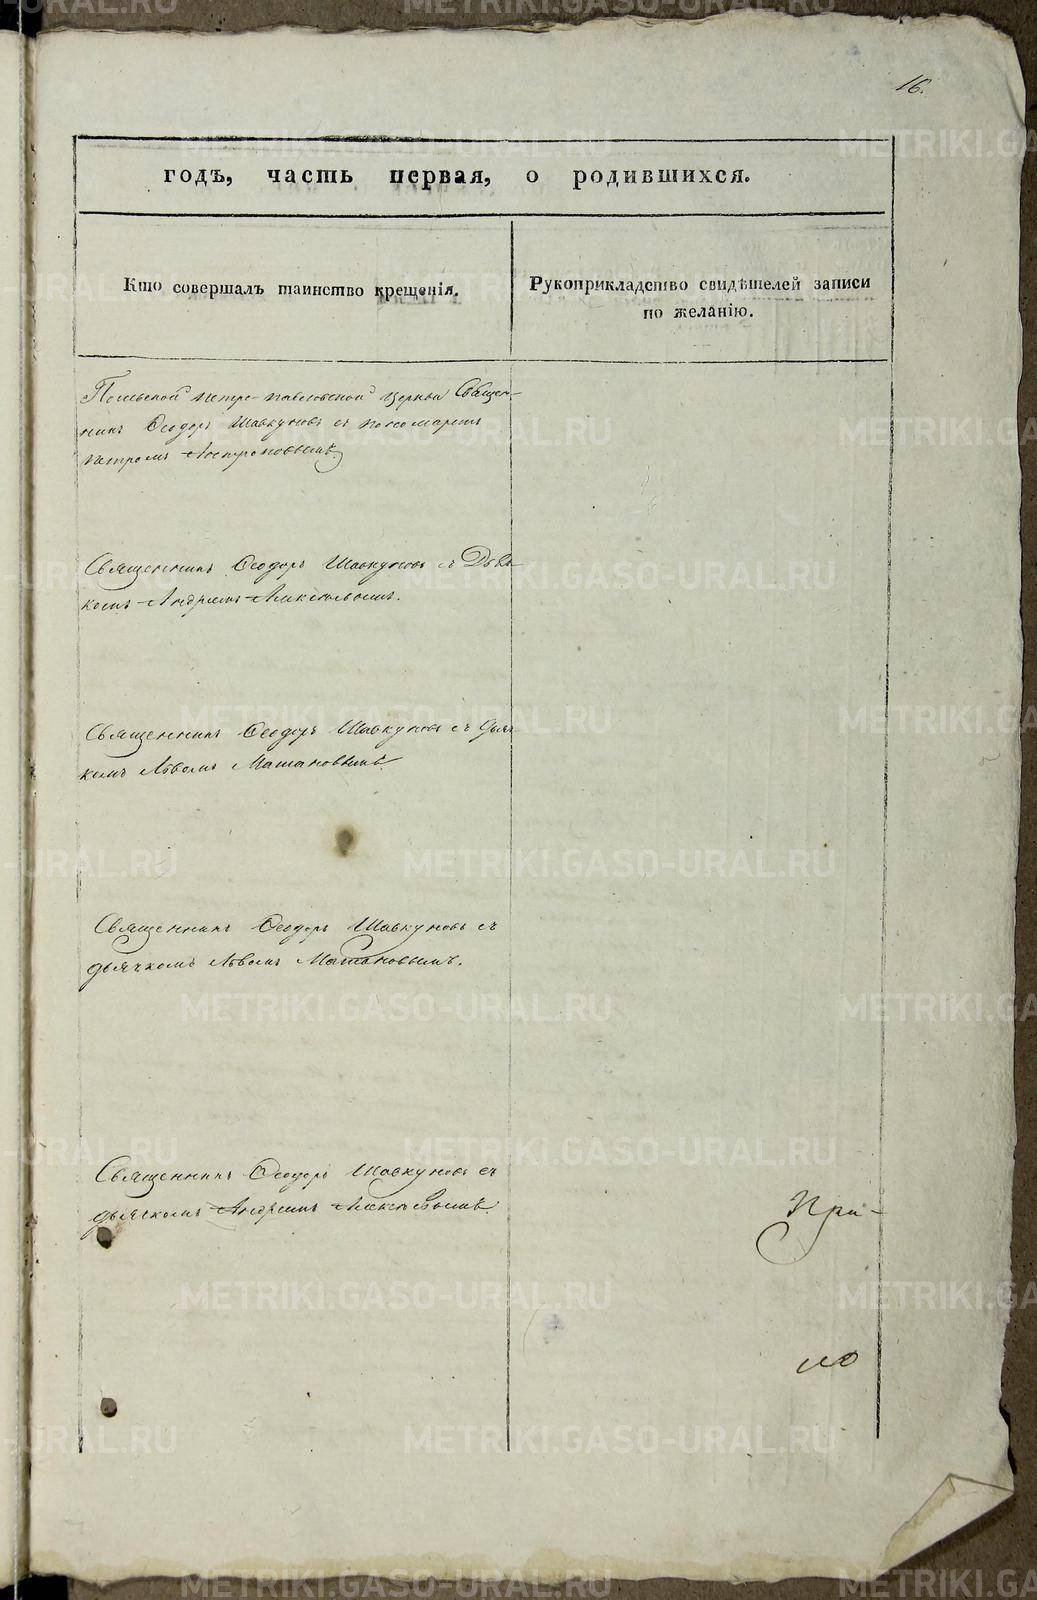 16.
годъ, часть первая, о родившихся.
Кто совершалъ таинство крещенія.
Рукоприкладство свидѣтелей записи
по желанію.
Петро-павловской церкви Священ-
никъ Ѳеодоръ Шавкуновъ съ пономаремъ
Петромъ
Священникъ Ѳеодоръ Шавкуновъ съ Дьяч-
комъ Андреемъ Алексѣевымъ.
Священникъ Ѳеодоръ Шавкуновъ съ дьяч-
комъ Львомъ Матановымъ
Священникъ Ѳеодоръ Шавкуновъ съ
дьячкомъ Львомъ Матановымъ.
Священникъ Ѳеодоръ Шавкуновъ съ
дьячкомъ Андреемъ Алексѣевымъ.
При-
но
METRIKI.GASO-URAL.RU